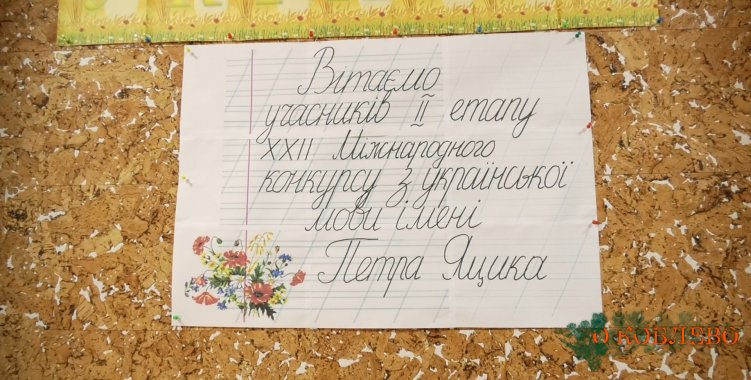 Вітаємо
учасників ІІ етапу
XXII Міжнародного
конкурсу з української
мови імені
Петра Яцика
О КОБЛЕВО